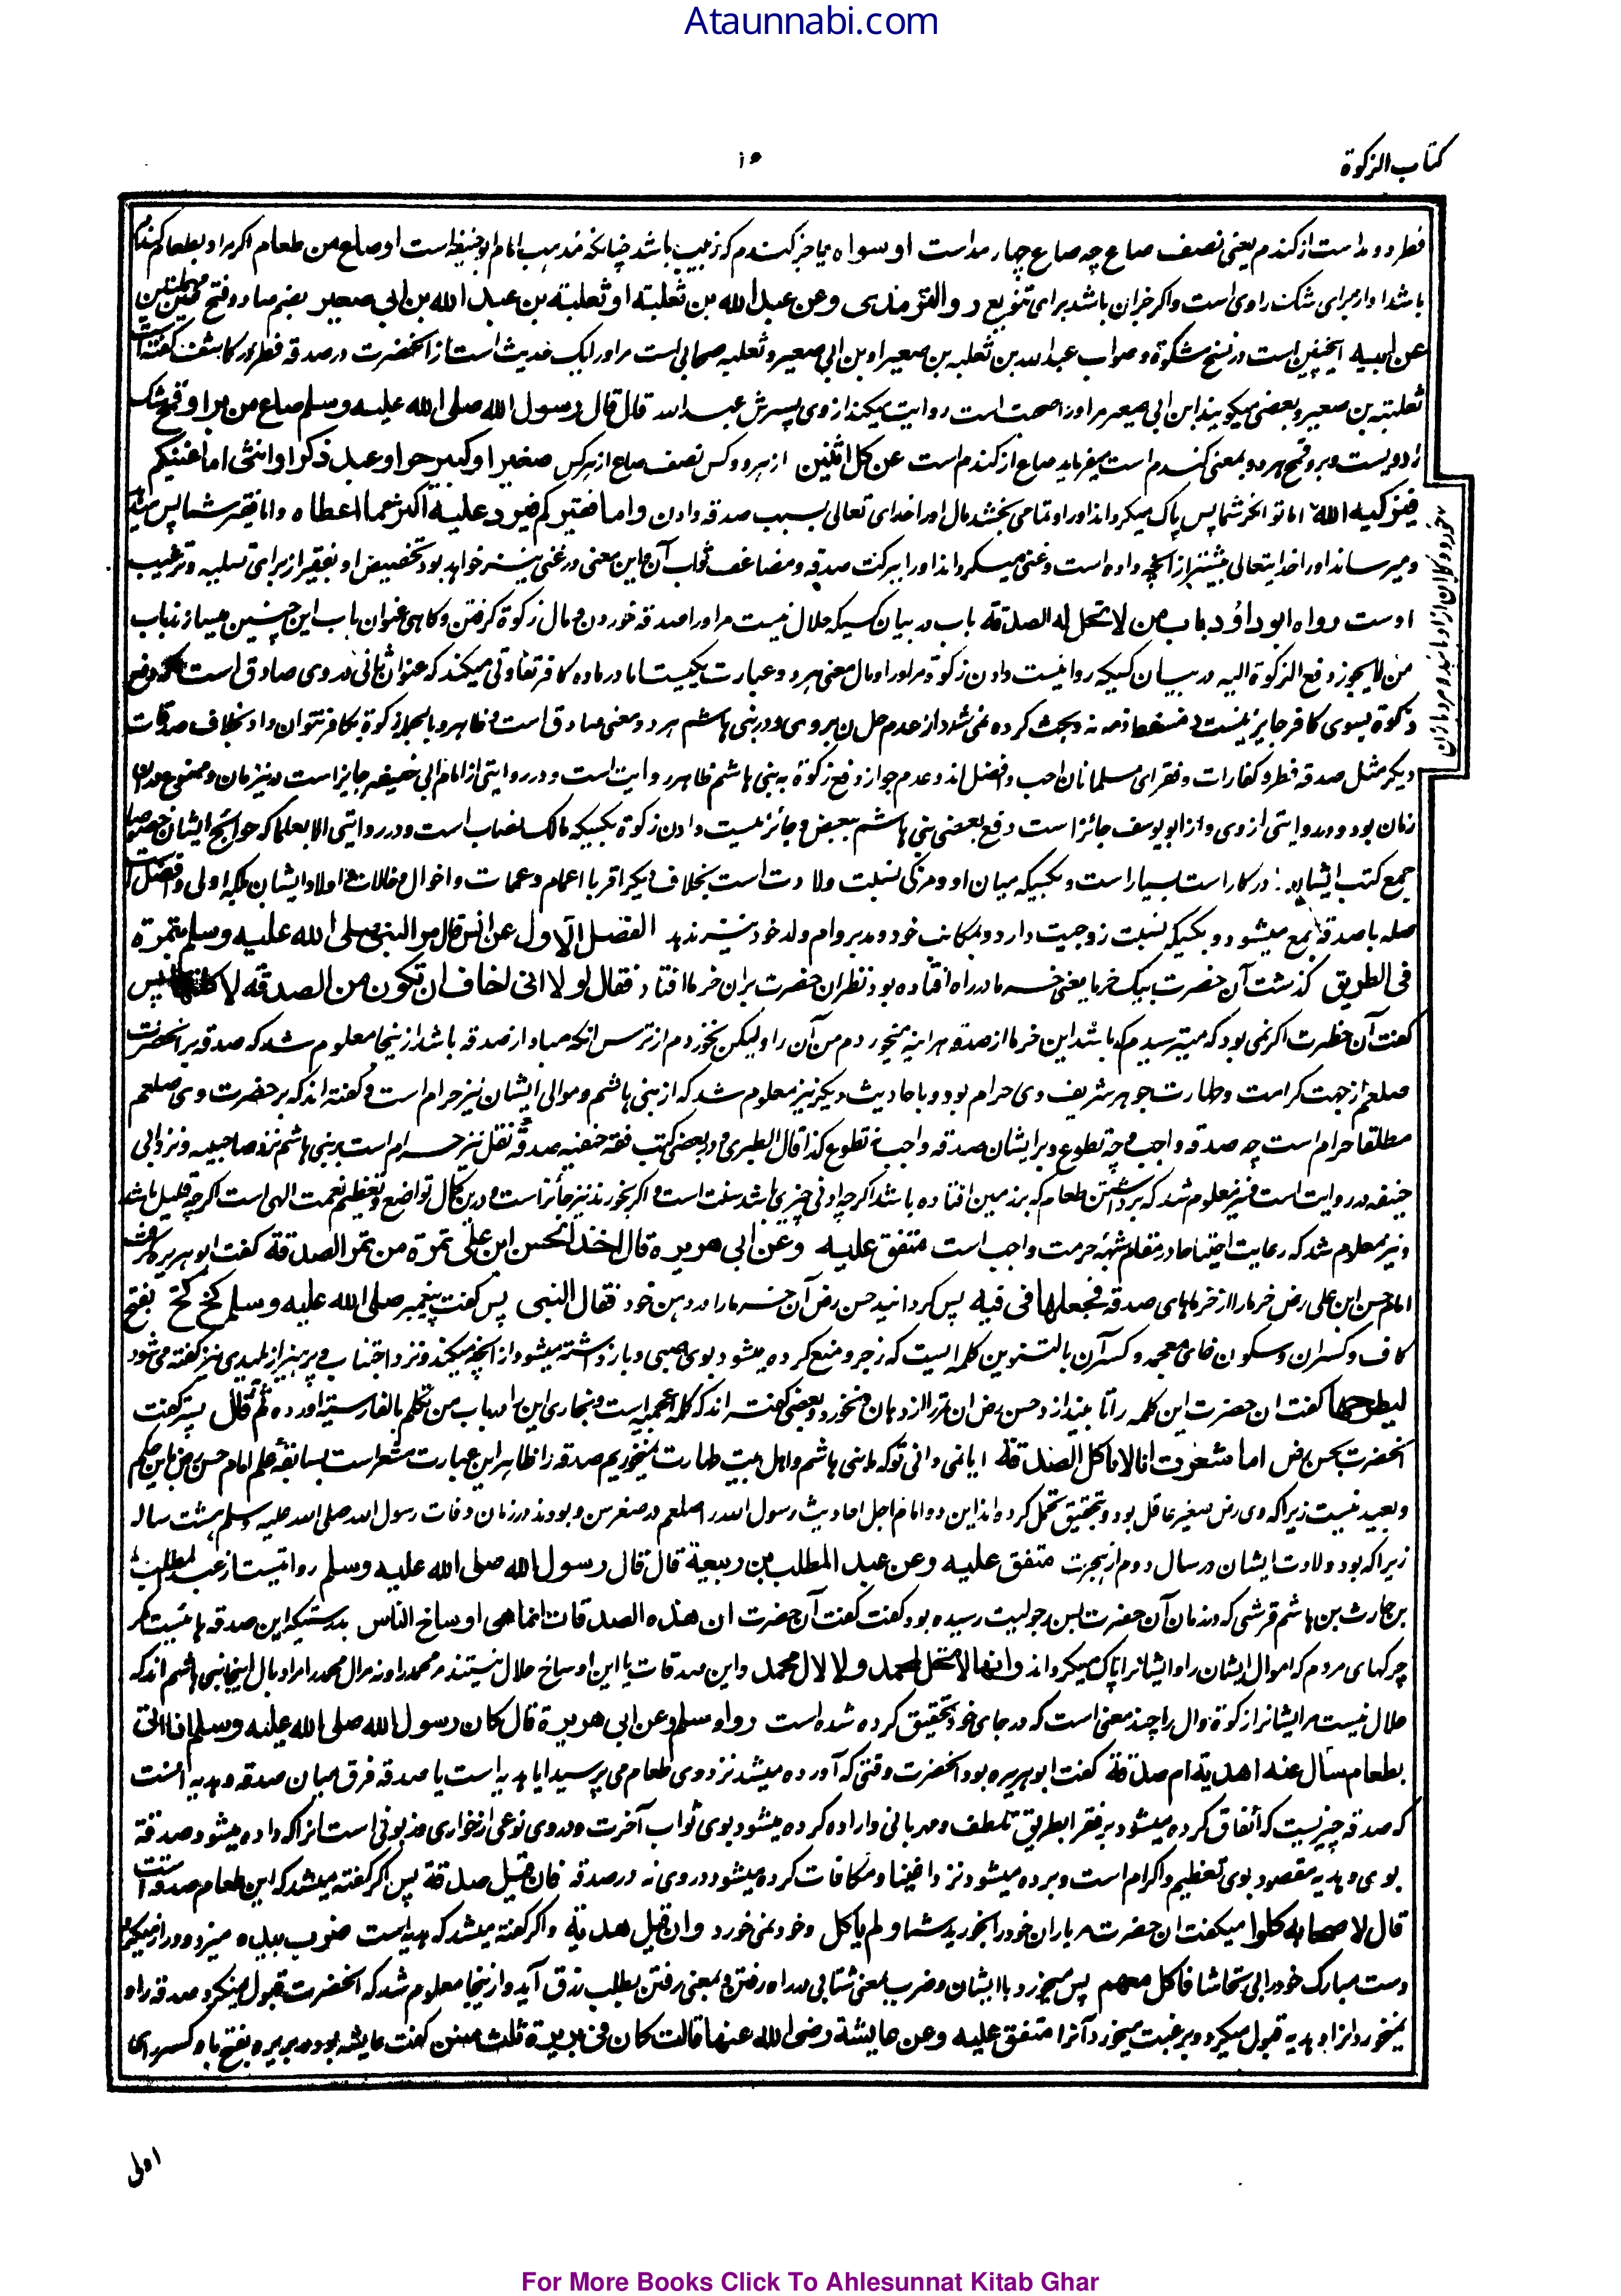 Ataunnabi.com
کتاب الزکوة
فطر دو مد است از کندم یعنی نصف صاع چه صاع چهار مد است او سواه یا جز کندم که زبیب باشد چنانکه مذهب امام ابوحنیفه است او صاع من طعام اکر مراد بطعام کندم
باشد او از برای شک راوی است واکر جز آن باشد برای تنویع رواه الترمذی وعن عبد الله بن ثعلبة او ثعلبة بن عبد الله بن ابی صعیر بضم صاد وفتح عین مهملتین
عن ابیه اینچنین است در نسخ مشکوة وصواب عبدالله بن ثعلبه بن صعیر او بن ابی صعیر وثعلبه صحابی است مراورا یک حدیث است از آنحضرت در صدقه فطر
ثعلبة بن صعیر وبعضی میکویند ابن ابی صعیر مراورا صحبت است روایت میکند از وی پسرش عبدالله قال قال رسول الله صلی الله علیه وسلم صاع من بر او قمح شک
راویست وبر وقمح هر دو بمعنی کندم است میفرماید صاع از کندم است عن کل اثنین از هر دو کس نصف صاع از هر کس صغیر او کبیر حر او عبد ذکر او انثی اما غنیکم
خورد وکلان ازاد یا بنده مرد یا زن
فیزکیه الله اما توانکر شما پس پاک میکرداند اورا وتمامی بخشد مال اورا خدای تعالی بسبب صدقه دادن واما فقیرکم فیرد علیه اکثر مما اعطاه واما فقیر شما پس
ومیرساند اورا خدایتعالی بیشتر از آنچه داده است وغنی میکرداند اورا ببرکت صدقه ومضاعف ثواب آن واین معنی در غنی نیز خواهد بود تخصیص او بفقیر از برای تسلیه وترغیب
اوست رواه ابو داؤد باب من لا تحل له الصدقة باب در بیان کسیکه حلال نیست مراورا صدقه خوردن ومال زکوة کرفتن وکاهی عنوان باب این چنین میسازند باب
من لا یجوز دفع الزکوة الیه در بیان کسیکه روا نیست دادن زکوة مراورا ومال معنی هر دو عبارت یکیست اما در ماده کافر تفاوتی میکند که عنوان ثانی در وی صادق است که دفع
زکوة بسوی کافر جایز نیست ودر بنی هاشم هر دو معنی صادق است وظاهر وبالجمله زکوة بکافر نتوان داد بخلاف صدقات
دیکر مثل صدقه فطر وکفارات وفقرای مسلمانان احب وافضل اند وعدم جواز دفع زکوة به بنی هاشم ظاهر روایت است ودر روایتی از امام ابی حنیفه جایز است درین زمان وممنوع در آن
زمان بود ودر روایتی از وی واز ابو یوسف جائز است دفع بعضی بنی هاشم ببعض وجائز نیست دادن زکوة بکسیکه مالک نصاب است ودر روایتی الا بعلما که حوائج ایشان
جمع کتب ایشان در کار است بسیار است وبکسیکه میان او ومزکی نسبت ولادت است بخلاف دیکر اقربا اعمام وعمات واخوال وخالات واولاد ایشان بلکه اولی وافضل است
صله با صدقه جمع میشود وبکسیکه نسبت زوجیت دارد وبمکاتب خود ومدبر وام ولد خود نیز ندهد الفصل الاول عن انس قال مر النبی صلی الله علیه وسلم بتمرة
فی الطریق کذشت آن حضرت بیک خرما یعنی خرما در راه افتاده بود نظر آن حضرت بران خرما افتاد فقال لولا انی اخاف ان تکون من الصدقة لاکلتها پس
کفت آن حضرت اکر نمی بود که میترسیدم که باشد این خرما از صدقه هراینه میخوردم من آن را ولیکن نخوردم از ترس آنکه مبادا از صدقه باشد ازینجا معلوم شد که صدقه بر آنحضرت
صلعم از جهت کرامت وطهارت جوهر شریف وی حرام بود وباحادیث دیکر نیز معلوم شد که از بنی هاشم وموالی ایشان نیز حرام است وکفته اند که بر حضرت وی صلعم
مطلقا حرام است چه صدقه واجب وچه تطوع وبر ایشان صدقه واجب نه تطوع کذا قال الطیبی ودر بعضی کتب فقه حنفیه صدقه نفل نیز حرام است بر بنی هاشم نزد صاحبیه ونزد ابی
حنیفه در روایت است ونیز معلوم شد که برداشتن طعام که بر زمین افتاده باشد اکرچه ادنی چیزی باشد سنت است واکر بخورند نیز جائز است ودرین کمال تواضع وتعظیم نعمت الهی است اکرچه قلیل باشد
ونیز معلوم شد که رعایت احتیاط در مقام شبهه حرمت واجب است متفق علیه وعن ابی هریرة قال اخذ الحسن ابن علی تمرة من تمر الصدقة کفت ابو هریره کرفت
امام حسن ابن علی رض خرما را از خرماهای صدقه فجعلها فی فیه پس کردانید حسن رض آن خرما را در دهن خود فقال النبی پس کفت پیغمبر صلی الله علیه وسلم کخ کخ بفتح
کاف وکسران وسکون خای معجمه وکسرآن بالتنوین کلمه ایست که زجر ومنع کرده میشود بوی صبی وباز داشته میشود از آنچه میکند ونزد اجتناب وپرهیز از پلیدی نیز کفته می شود
لیطرحها کفت ان حضرت این کلمه را تا بیندازد حسن رض ان تمر را از دهان ونخورد وبعضی کفته اند که کلمه عجمیه است وبخاری این را در باب من تکلم بالفارسیة آورده ثم قال پستر کفت
آنحضرت بحسن رض اما شعرت انا لا ناکل الصدقة ایا نمی دانی تو که ما بنی هاشم واهل بیت طهارت نمیخوریم صدقه را ظاهر این عبارت مشعر است بسابقه علم امام حسن رض باین حکم
وبعید نیست زیرا که وی رض صغیر عاقل بود وبتحقیق تحمل کرده اند این دو امام اجل احادیث رسول الله را صلعم در صغر سن وبودند در زمان وفات رسول الله صلی الله علیه وسلم هشت ساله
زیرا که بود ولادت ایشان در سال دوم از هجرت متفق علیه وعن عبد المطلب بن ربیعة قال قال رسول الله صلی الله علیه وسلم روایتست از عبد المطلب
بن حارث بن هاشم قرشی که در زمان آن حضرت بسن رجولیت رسیده بود کفت کفت آن حضرت ان هذه الصدقات انما هی اوساخ الناس بدرستیکه این صدقه ها نیست مکر
چرکهای مردم که اموال ایشان را وایشانرا پاک میکرداند وانها لا تحل لمحمد ولا لال محمد واین صدقات یا این اوساخ حلال نیستند مر محمد را ونه مر ال محمد را مراد بال اینجا بنی هاشم اند که
حلال نیست مر ایشانرا زکوة وال را چند معنی است که در جای خود تحقیق کرده شده است رواه مسلم وعن ابی هریرة قال کان رسول الله صلی الله علیه وسلم اذا اتی
بطعام سأل عنه اهدیة ام صدقة کفت ابو هریره بود آنحضرت وقتی که آورده میشد نزد وی طعام می پرسید ایا هدیه است یا صدقه فرق میان صدقه وهدیه آنست
که صدقه چیزیست که انفاق کرده میشود بر فقرا بطریق تلطف ومهربانی واراده کرده میشود بوی ثواب آخرت ودر وی نوعی از خواری وزبونی است انرا که داده میشود صدقه
بوی وهدیه مقصود بوی تعظیم واکرام است وبرده میشود نزد اغنیا ومکافات کرده میشود در وی نه در صدقه فان قیل صدقة پس اکر کفته میشد که این طعام صدقه است
قال لاصحابه کلوا میکفت ان حضرت مر یاران خود را بخورید شما ولم یاکل وخود نمی خورد وان قیل هدیة واکر کفته میشد که هدیه است ضرب بیده میزد ودراز میکرد
دست مبارک خود را بی تحاشا فاکل معهم پس میخورد با ایشان وضرب بمعنی شتابی در راه رفتن وبمعنی رفتن بطلب رزق آید وازینجا معلوم شد که آنحضرت قبول میکرد صدقه را و
نمیخورد ازان وهدیه قبول میکرد وبرغبت میخورد آنرا متفق علیه وعن عایشة رضی الله عنها قالت کان فی بریرة ثلث سنن کفت عایشه بود در بریره بفتح با وکسر رای
اولی
For More Books Click To Ahlesunnat Kitab Ghar